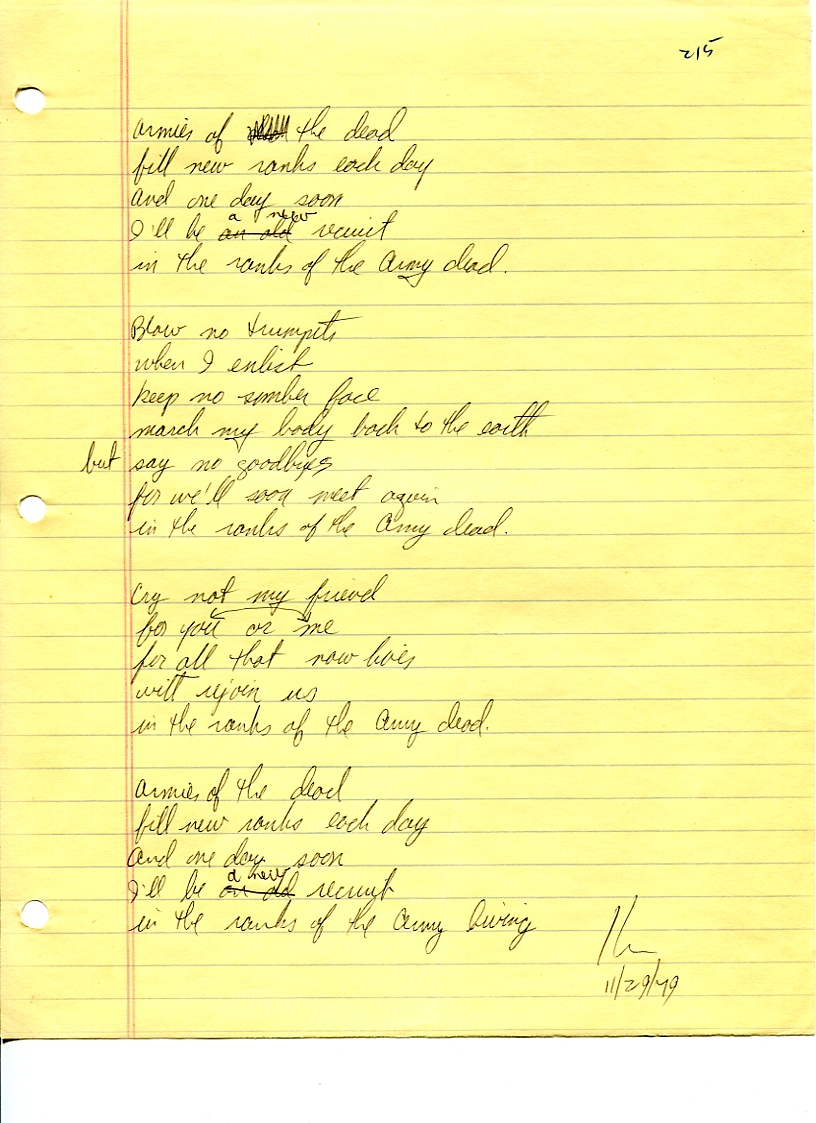 215
Armies of the dead
fill new ranks each day
And one day soon
a new
I'll be an old recruit
in the ranks of the Army dead.
Blow no trumpets
when I enlist
keep no somber face
march my body back to the earth
but say no goodbyes
for we'll soon meet again
in the ranks of the Army dead.
Cry not my friend
for you or me
for all that now lives
will rejoin us
in the ranks of the Army dead.
Armies of the dead
fill new ranks each day
And one day soon
a new
I'll be an old recruit
in the ranks of the Army living
11/29/79